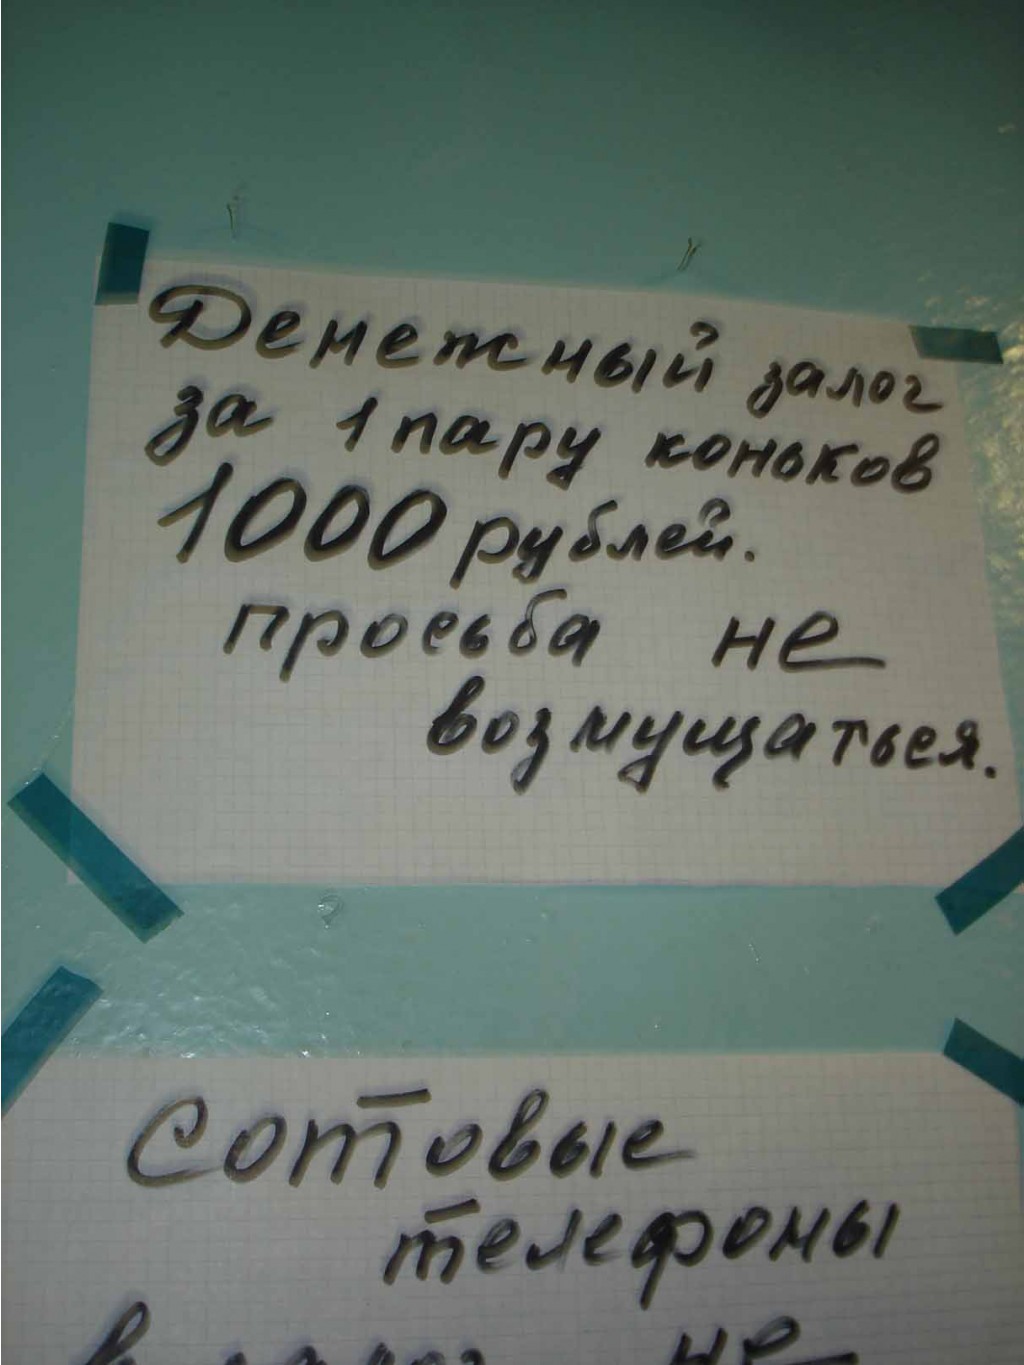 Денежный залог
за 1 пару коньков
1000 рублей.
просьба не
возмущаться.
Сотовые
телефоны
в залог не